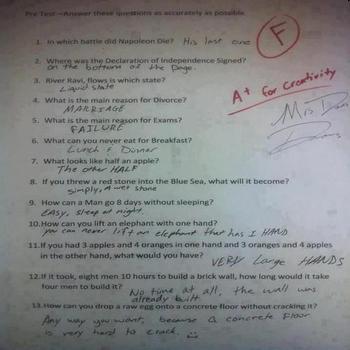 Pre Test - Answer these questions as accurately as possible.
F
1. In which battle did Napoleon Die? His last one
2. Where was the Declaration of Independence Signed?
on the bottom of the Page.
3. River Ravi, flows is which state?
Liquid state
A+ for Creativity
4. What is the main reason for Divorce?
MARRIAGE
5. What is the main reason for Exams?
FAILURE
6. What can you never eat for Breakfast?
Lunch & Dinner
7. What looks like half an apple?
The other HALF
8. If you threw a red stone into the Blue Sea, what will it become?
Simply, A wet stone
9. How can a Man go 8 days without sleeping?
EASY, sleep at night.
10. How can you lift an elephant with one hand?
you can never lift an elephant that has 1 HAND
11. If you had 3 apples and 4 oranges in one hand and 3 oranges and 4 apples
in the other hand, what would you have? VERY Large HANDS
12. If it took, eight men 10 hours to build a brick wall, how long would it take
four men to build it? No time at all, the wall was
already built
13. How can you drop a raw egg onto a concrete floor without cracking it?
Any way you want, because a concrete floor
is very hard to crack.